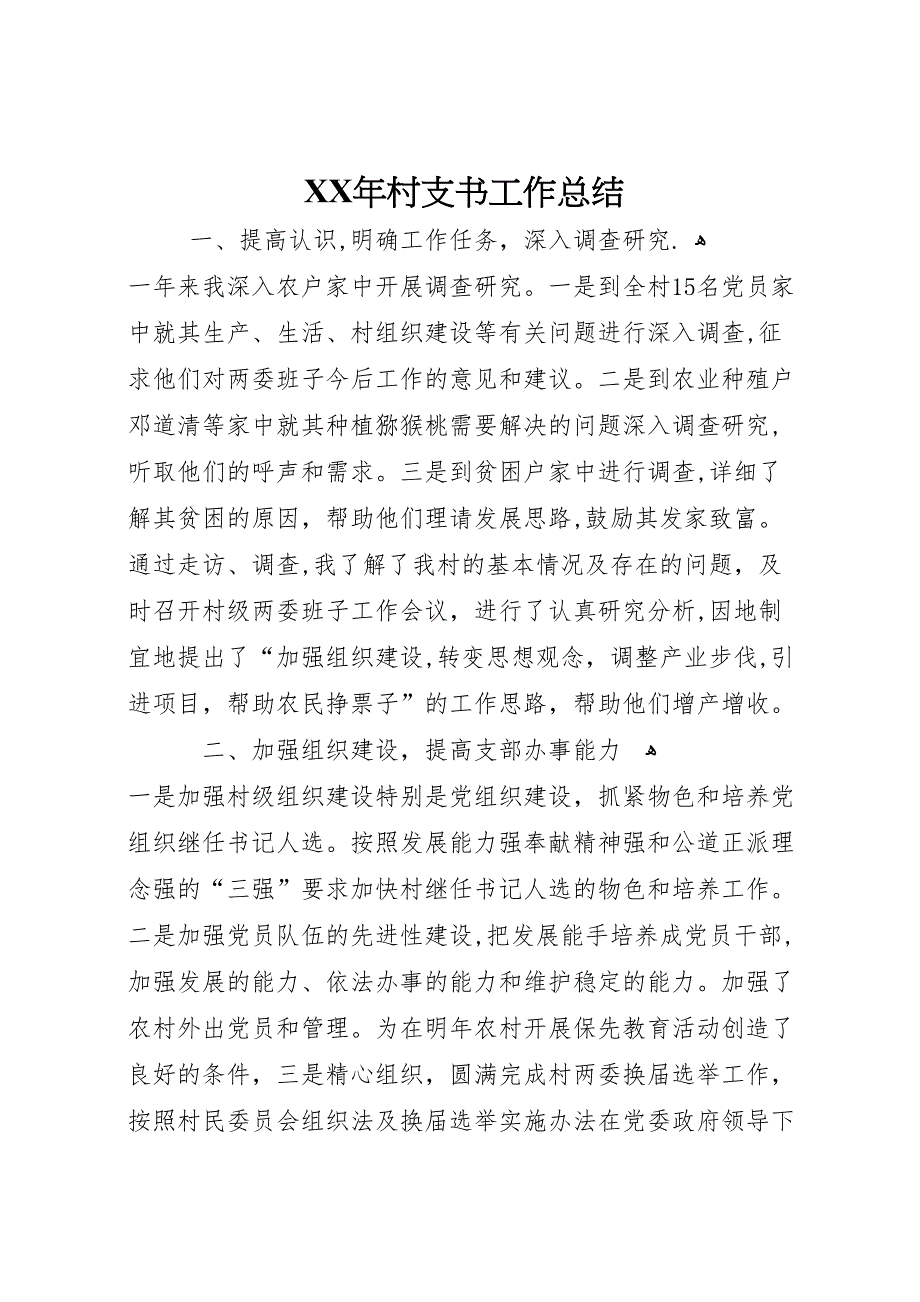 XX年村支书工作总结
一、提高认识,明确工作任务，深入调查研究. ﻬ
一年来我深入农户家中开展调查研究。一是到全村15名党员家
中就其生产、生活、村组织建设等有关问题进行深入调查,征
求他们对两委班子今后工作的意见和建议。二是到农业种殖户
邓道清等家中就其种植猕猴桃需要解决的问题深入调查研究，
听取他们的呼声和需求。三是到贫困户家中进行调查,详细了
解其贫困的原因，帮助他们理请发展思路,鼓励其发家致富。
通过走访、调查,我了解了我村的基本情况及存在的问题，及
时召开村级两委班子工作会议，进行了认真研究分析,因地制
宜地提出了“加强组织建设,转变思想观念，调整产业步伐,引
进项目，帮助农民挣票子”的工作思路，帮助他们增产增收。
二、加强组织建设，提高支部办事能力 ﻬ
一是加强村级组织建设特别是党组织建设，抓紧物色和培养党
组织继任书记人选。按照发展能力强奉献精神强和公道正派理
念强的“三强”要求加快村继任书记人选的物色和培养工作。
二是加强党员队伍的先进性建设,把发展能手培养成党员干部,
加强发展的能力、依法办事的能力和维护稳定的能力。加强了
农村外出党员和管理。为在明年农村开展保先教育活动创造了
良好的条件，三是精心组织，圆满完成村两委换届选举工作，
按照村民委员会组织法及换届选举实施办法在党委政府领导下